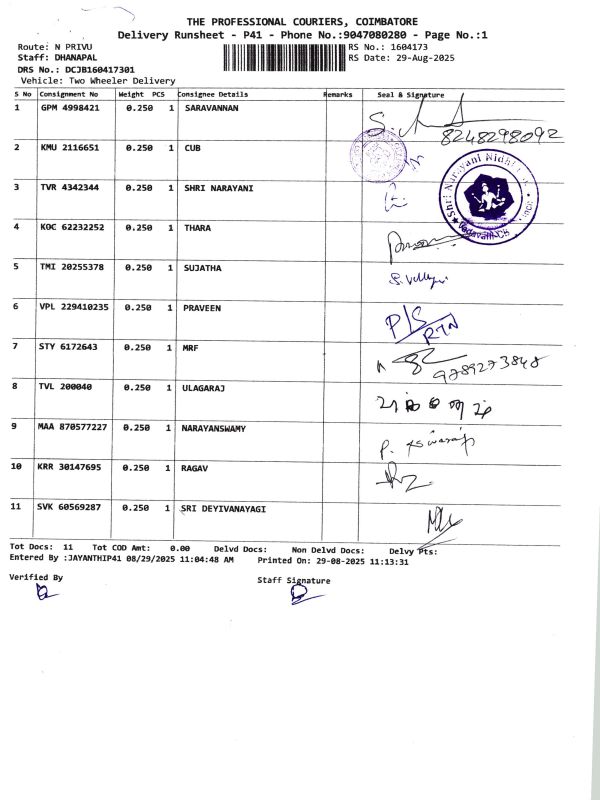 THE PROFESSIONAL COURIERS, COIMBATORE
Delivery Runsheet - P41 - Phone No.:9047080280 - Page No.:1
Route: N PRIVU RS No.: 1604173
Staff: DHANAPAL RS Date: 29-Aug-2025
DRS No.: DCJB160417301
Vehicle: Two Wheeler Delivery
S No Consignment No Weight PCS Consignee Details Remarks Seal & Signature
1 GPM 4998421 0.250 1 SARAVANNAN
8248298092
2 KMU 2116651 0.250 1 CUB
3 TVR 4342344 0.250 1 SHRI NARAYANI
Shri Narayani Nidhi
4 KOC 62232252 0.250 1 THARA
5 TMI 20255378 0.250 1 SUJATHA
6 VPL 229410235 0.250 1 PRAVEEN P/S
RTN
7 STY 6172643 0.250 1 MRF
9789273848
8 TVL 200040 0.250 1 ULAGARAJ
9 MAA 870577227 0.250 1 NARAYANSWAMY
10 KRR 30147695 0.250 1 RAGAV
11 SVK 60569287 0.250 1 SRI DEYIVANAYAGI
Tot Docs: 11 Tot COD Amt: 0.00 Delvd Docs: Non Delvd Docs: Delvy Pts:
Entered By :JAYANTHIP41 08/29/2025 11:04:48 AM Printed On: 29-08-2025 11:13:31
Verified By Staff Signature